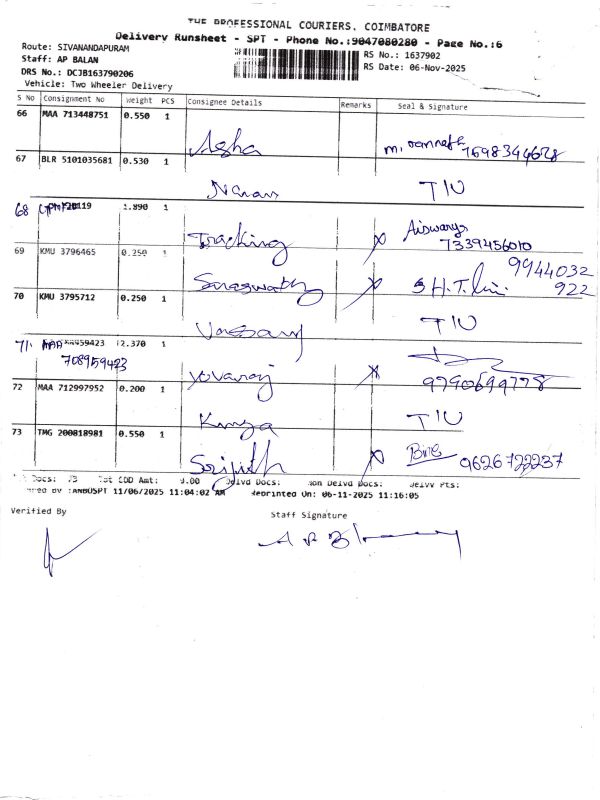 THE PROFESSIONAL COURIERS, COIMBATORE
Delivery Runsheet - SPT - Phone No.:9047080280 - Page No.:6
Route: SIVANANDAPURAM
RS No.: 1637902
Staff: AP BALAN
RS Date: 06-Nov-2025
DRS No.: DCJB163790206
Vehicle: Two Wheeler Delivery
S No Consignment No Weight PCS Consignee Details Remarks Seal & Signature
66 MAA 713448751 0.550 1
Asha
67 BLR 5101035681 0.530 1
T/U
68 1.890 1
Tracking Aiswarya
7339456010
69 KMU 3796465 0.250 1
Saraswathy 9944032
922
70 KMU 3795712 0.250 1
T/U
71. 2.370 1
708959423
Yuvaraj 9790699778
72 MAA 712997952 0.200 1
T/U
73 TMG 200818981 0.550 1
Srijith 9626722237
Docs: 73 Tot COD Amt: 0.00 Delvd Docs: Non Delvd Docs: Delvy Pts:
11/06/2025 11:04:02 AM Reprinted On: 06-11-2025 11:16:05
Verified By Staff Signature